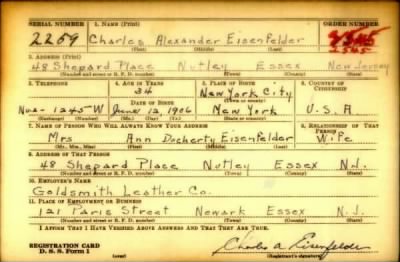 SERIAL NUMBER 1. NAME (Print) ORDER NUMBER
2259 Charles Alexander Eisenfelder
(First) (Middle) (Last)
2. ADDRESS (Print)
48 Shepard Place Nutley Essex New Jersey
(Number and street or R. F. D. number) (Town) (County) (State)
3. TELEPHONE 4. AGE IN YEARS 5. PLACE OF BIRTH 6. COUNTRY OF CITIZENSHIP
34 New York City
DATE OF BIRTH (Town or county)
1245-W June 12 1906 New York U.S.A
(Exchange) (Number) (Mo.) (Day) (Yr.) (State or country)
7. NAME OF PERSON WHO WILL ALWAYS KNOW YOUR ADDRESS 8. RELATIONSHIP OF THAT PERSON
Mrs Ann Docherty Eisenfelder Wife
(Mr., Mrs., Miss) (First) (Middle) (Last)
9. ADDRESS OF THAT PERSON
48 Shepard Place Nutley Essex N.J.
(Number and street or R. F. D. number) (Town) (County) (State)
10. EMPLOYER'S NAME
Goldsmith Leather Co.
11. PLACE OF EMPLOYMENT OR BUSINESS
121 Paris Street Newark Essex N.J.
(Number and street or R. F. D. number) (Town) (County) (State)
I AFFIRM THAT I HAVE VERIFIED ABOVE ANSWERS AND THAT THEY ARE TRUE.
REGISTRATION CARD
D. S. S. Form 1 Charles A Eisenfelder
(Registrant's signature)